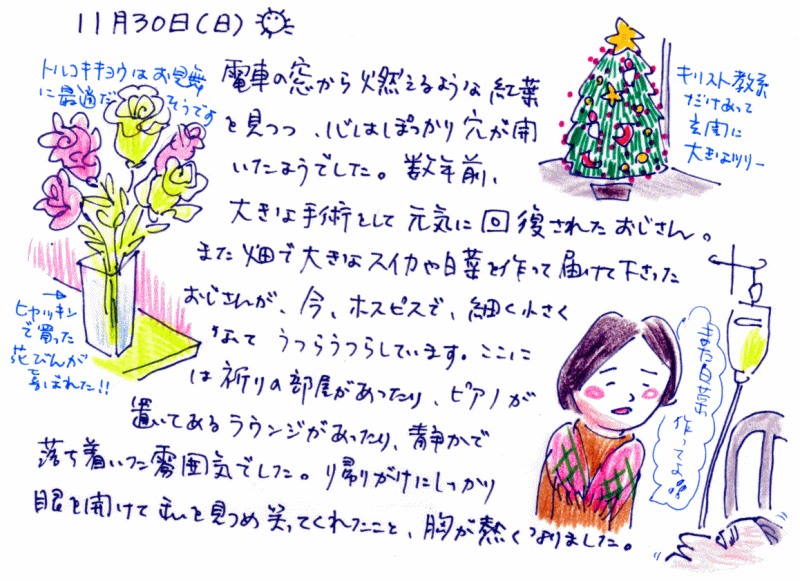 11月30日(日)
トルコキキョウはお見舞
に最適だそうです
電車の窓から燃えるような紅葉
を見つつ、心はぽっかり穴が開
いたようでした。数年前、
大きな手術をして元気に回復されたおじさん。
また畑で大きなスイカや白菜を作って届けて下さった
おじさんが、今、ホスピスで、細く小さく
なって うつらうつらしています。ここに
は祈りの部屋があったり、ピアノが
置いてあるラウンジがあったり、静かで
落ち着いた雰囲気でした。帰りがけにしっかり
眼を開けて私を見つめ笑ってくれたこと、胸が熱くなりました。
キリスト教系
だけあって
玄関に
大きなツリー
ヒャッキン
で買った
花びんが
喜ばれた!!
また白菜
作ってよ